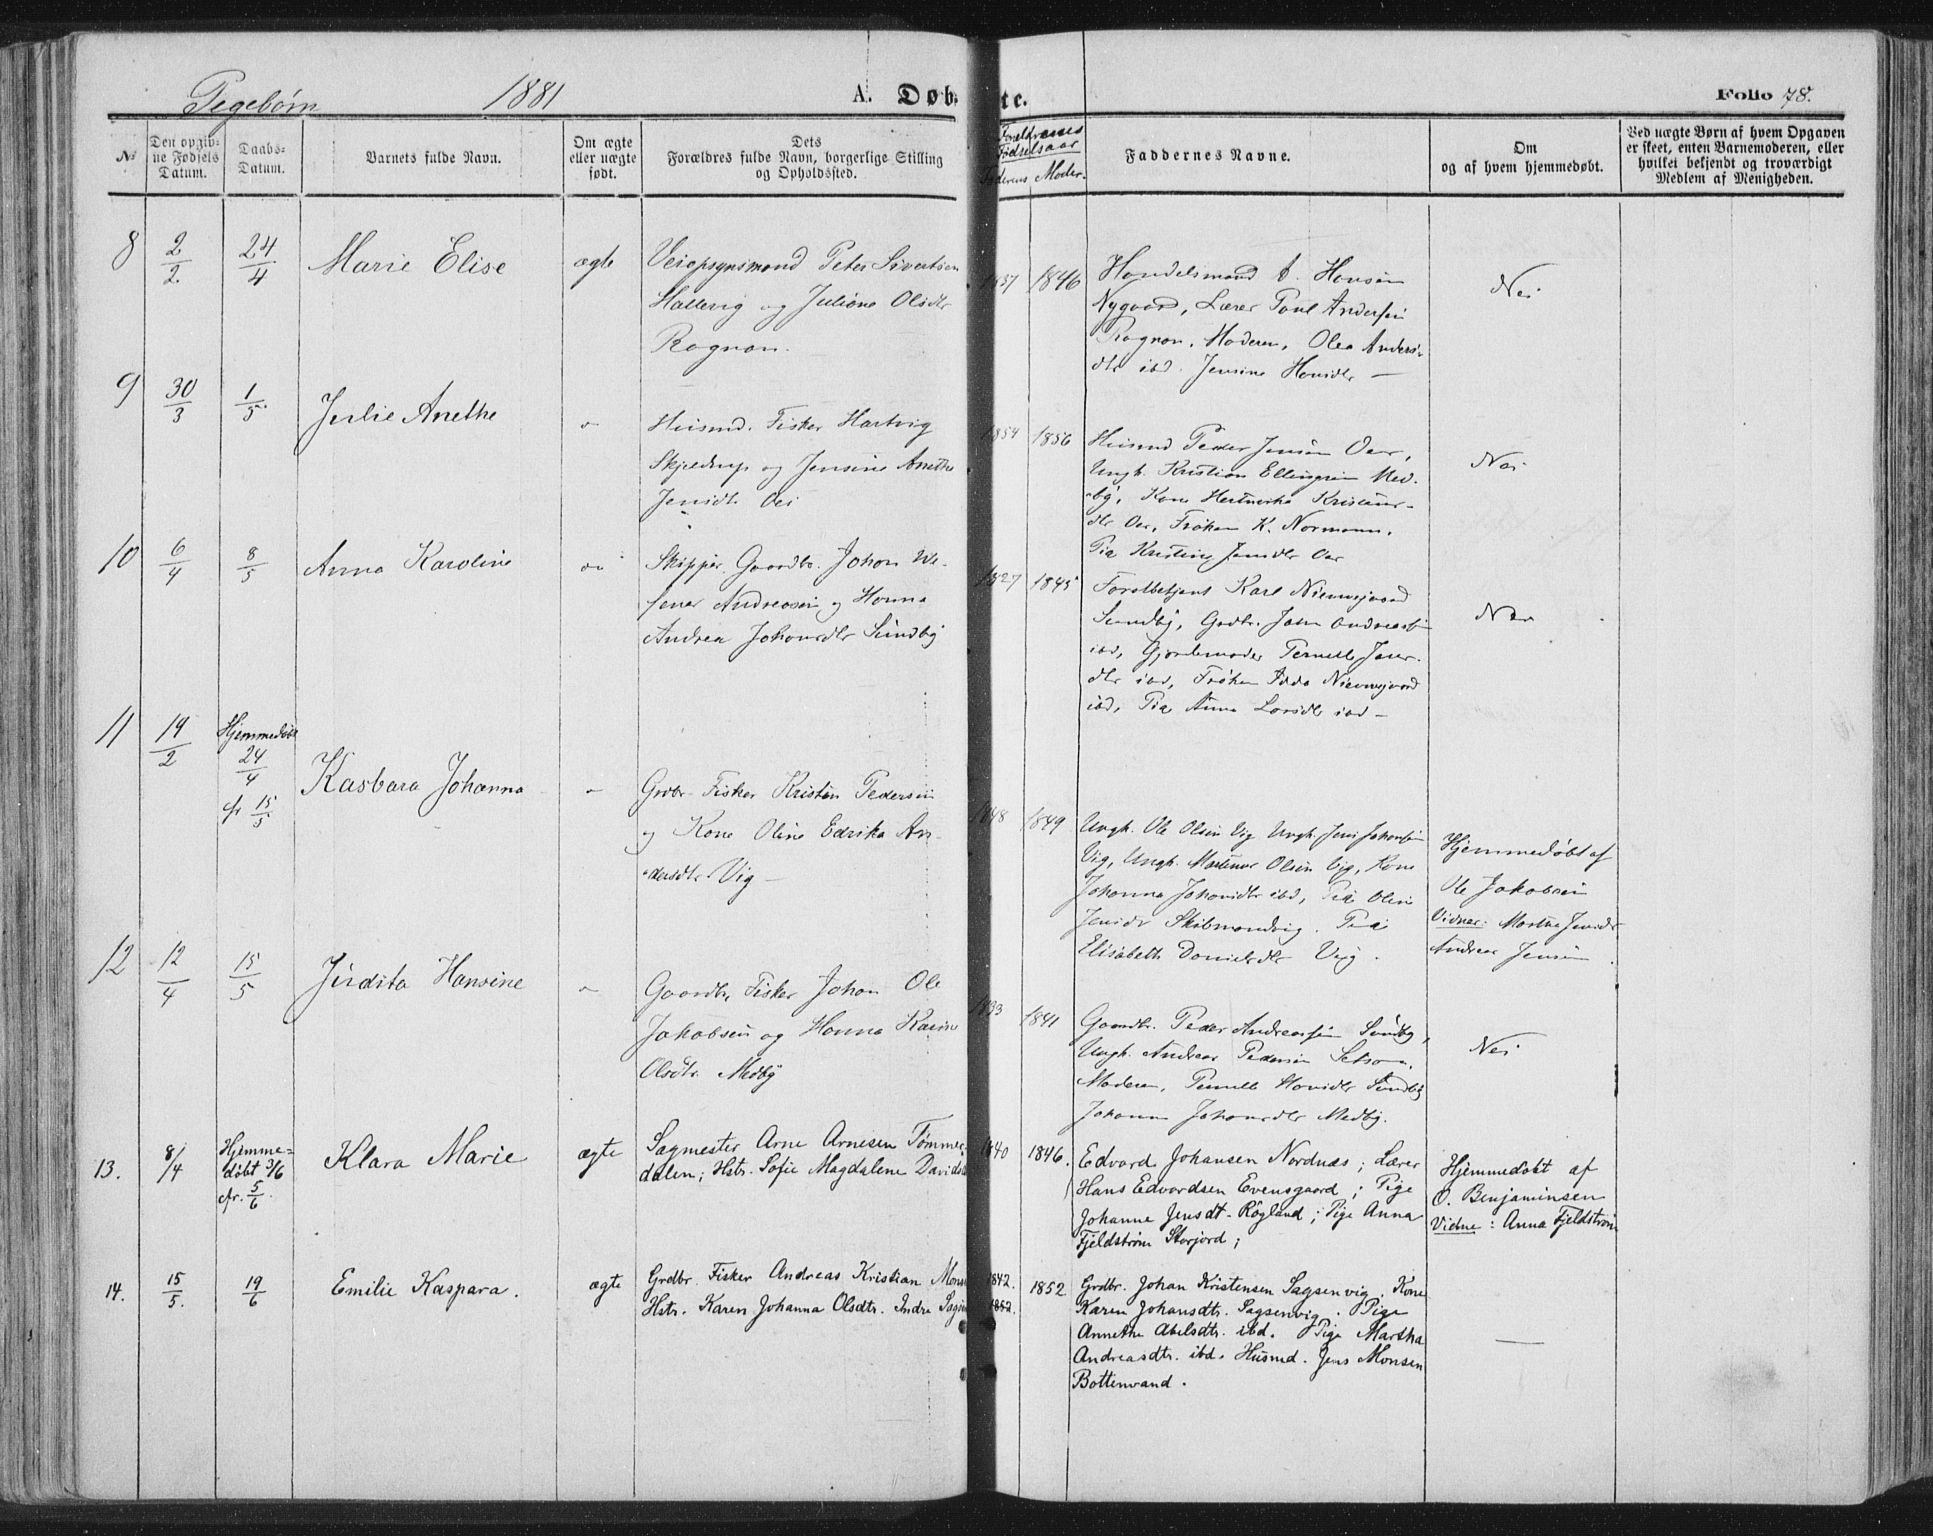 Pigebørn 1881 A. Døb- te. Folio 78.
№
Den opgiv-
ne Fødsels
Datum.
Daabs-
Datum.
Barnets fulde Navn.
Om ægte
eller uægte
født.
Dets
Forældres fulde Navn, borgerlige Stilling
og Opholdssted.
Forældrenes
Fødselsaar
Faderens Moder.
Faddernes Navne.
Om
og af hvem hjemmedøbt.
Ved uægte Børn af hvem Opgaven
er skeet, enten Barnemoderen, eller
hvilket bekjendt og troværdigt
Medlem af Menigheden.
8 2/2 24/4 Marie Elise ægte
Veiopsynsmand Peter Sivertsen
Hallevig og Juliane Olsdtr
Rognan.
1837 1846
Handelsmand A. Hansen
Nygaard, Lærer Poul Andersen
Rognan, Moderen, Olea Anders-
dtr ibd. Jensine Hansdtr —
Nei
9 30/3 1/5 Julie Anethe
Husmd. Fisker Hartvig
Skjeldrup og Jensine Anethe
Jensdtr. Øei
1854 1856
Husmd Peder Jensen Øer,
Ungk. Kristian Ellingsen Med-
by, Kone Kristense-
dtr Øer, Frøken K. Normann,
Pia Kristine Jensdtr Øer
Nei
10 6/4 8/5 Anna Karoline
Skipper, Gaardbr. Johan We-
sener Andreasen og Hanna
Andrea Johansdtr Sundby
1827 1845
Forstbetjent Karl
Sundby, Grdbr. Jahn Andreassen
ibd, Gjordemoder Pernelle Jens-
dtr ibd, Frøken Adda
ibd, Pia Anna Larsdtr ibd —
Nei
11 19/2 Hjemmedøbt
24/4
fr 15/5
Kasbara Johanna
Grdbr. Fisker Kristen Pedersen
og Kone Oline Edrika An-
dersdtr Vig —
1848 1849
Ungk. Ole Olsen Vig Ungk. Jens Johansen
Vig, Ungk. Martinus Olsen Vig, Kone
Johanna Johansdtr ibd, Pia Oline
Jensdr Skibmandvig. Pia
Elisabeth Danielsdtr Vig.
Hjemmedøbt af
Ole Jakobsen
Vidner: Marthe Jensdtr
Andreas Jensen.
12 12/4 15/5 Judita Hansine
Gaardbr, Fisker Johan Ole
Jakobsen og Hanna Karine
Olsdtr. Medby
1833 1841
Gaardbr. Peder Andreassen Sundby,
Ungk. Andreas Pedersen Setsaa,
Moderen, Pernelle Hansdtr Sundby
Johanna Johansdtr Medby.
Nei
13. 8/4 Hjemme-
døbt 3/6
fr. 5/6.
Klara Marie ægte
Sagmester Arne Arnesen Tømmer-
dalen; Hstr. Sofie Magdalene Davids
1840 1846.
Edvard Johansen Nordnæs; Lærer
Hans Edvardsen Evensgaard; Pige
Johanne Jensdt. Røgland; Pige Anna
Fjeldstrøm Storjord;
Hjemmedøbt af
O. Benjaminsen
Vidne: Anna Fjeldstrøm
14. 15/5. 19/6 Emilie Kaspara. ægte
Grdbr. Fisker Andreas Kristian Mons
Hstr. Karen Johanna Olsdtr. Indre Sagen
1842. 1852
1852.
Grdbr. Johan Kristensen Sagsenvig. Kone
Karen Johansdtr. Sagsenvig. Pige
Annethe Abelsdtr. ibd. Pige Martha
Andreasdtr. ibd. Husmd. Jens Monsen
Bottenvand.